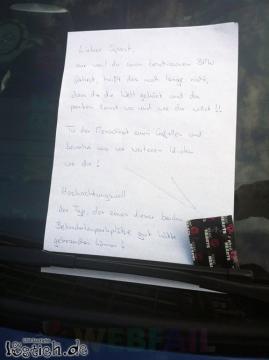 Lieber Spast,
nur weil du einen bestimmten BMW
fährst, heißt das noch lange nicht,
dass dir die Welt gehört und du
parken kannst wo und wie du willst!!
Tu der Menschheit einen Gefallen und
bewahre uns vor weiteren Idioten
wie dir!
Hochachtungsvoll
der Typ, der einen dieser beiden
Behindertenparkplätze gut hätte
gebrauchen können!
18stich.de
WEBFAIL